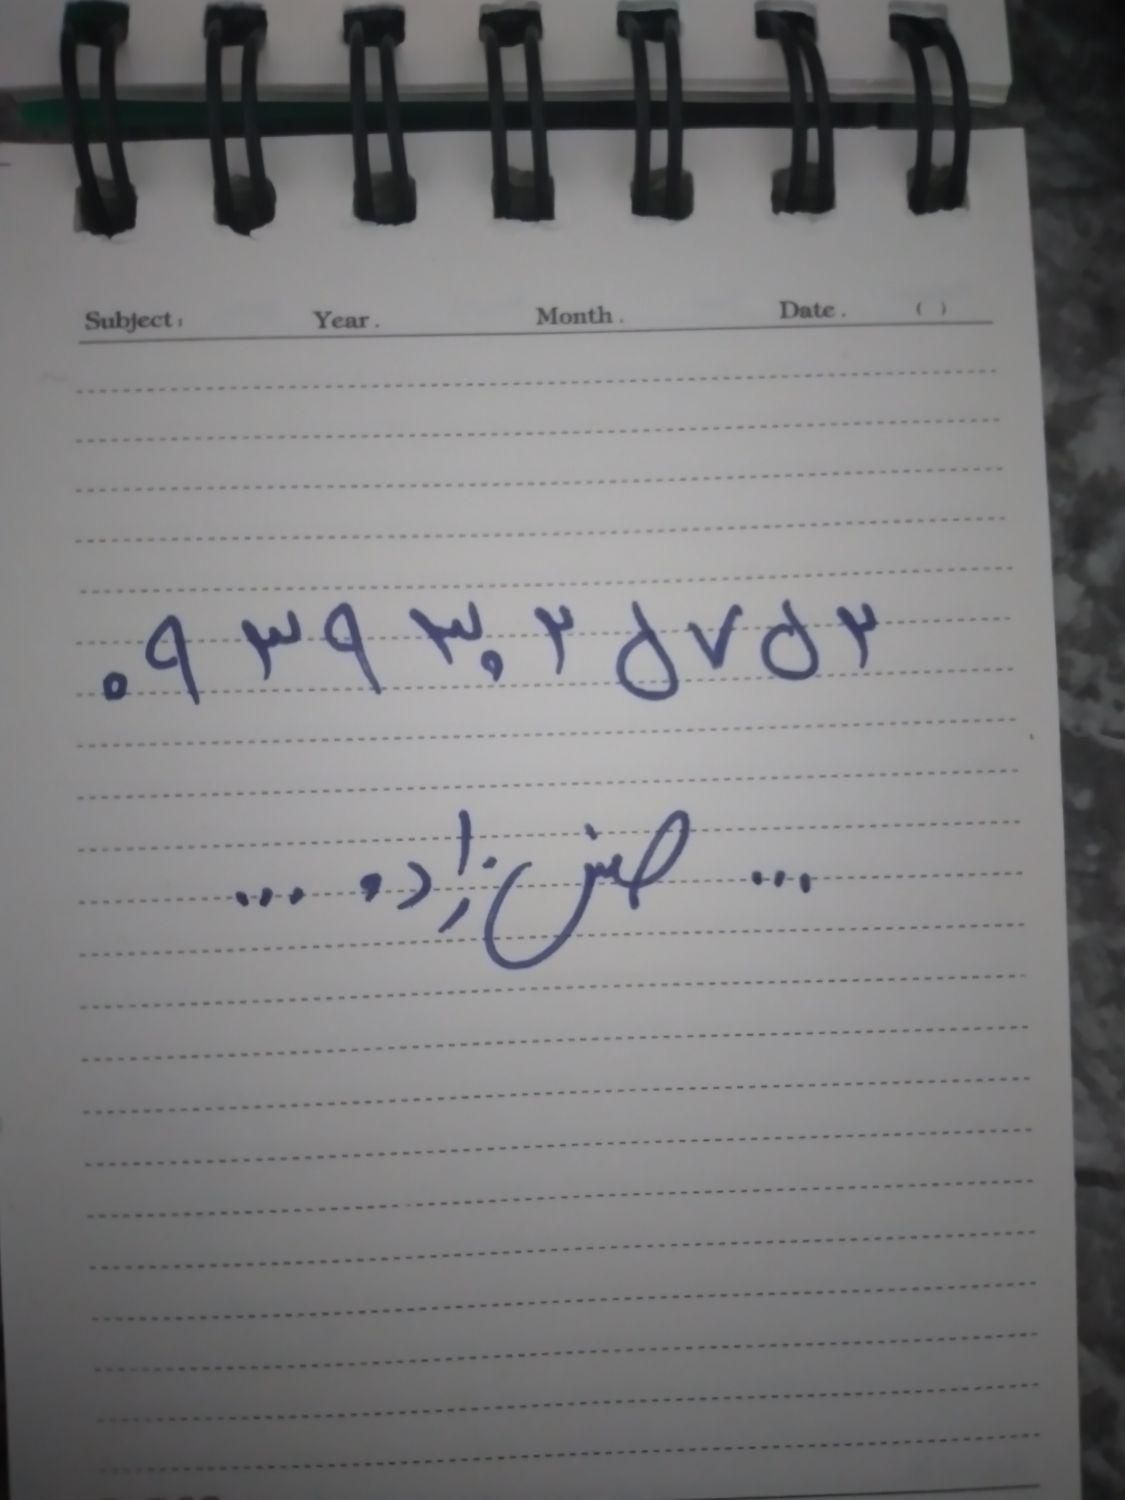 Subject: Year. Month. Date. ( )
۰۹۳۹۳۰۲۵۷۵۲
... زاده ...